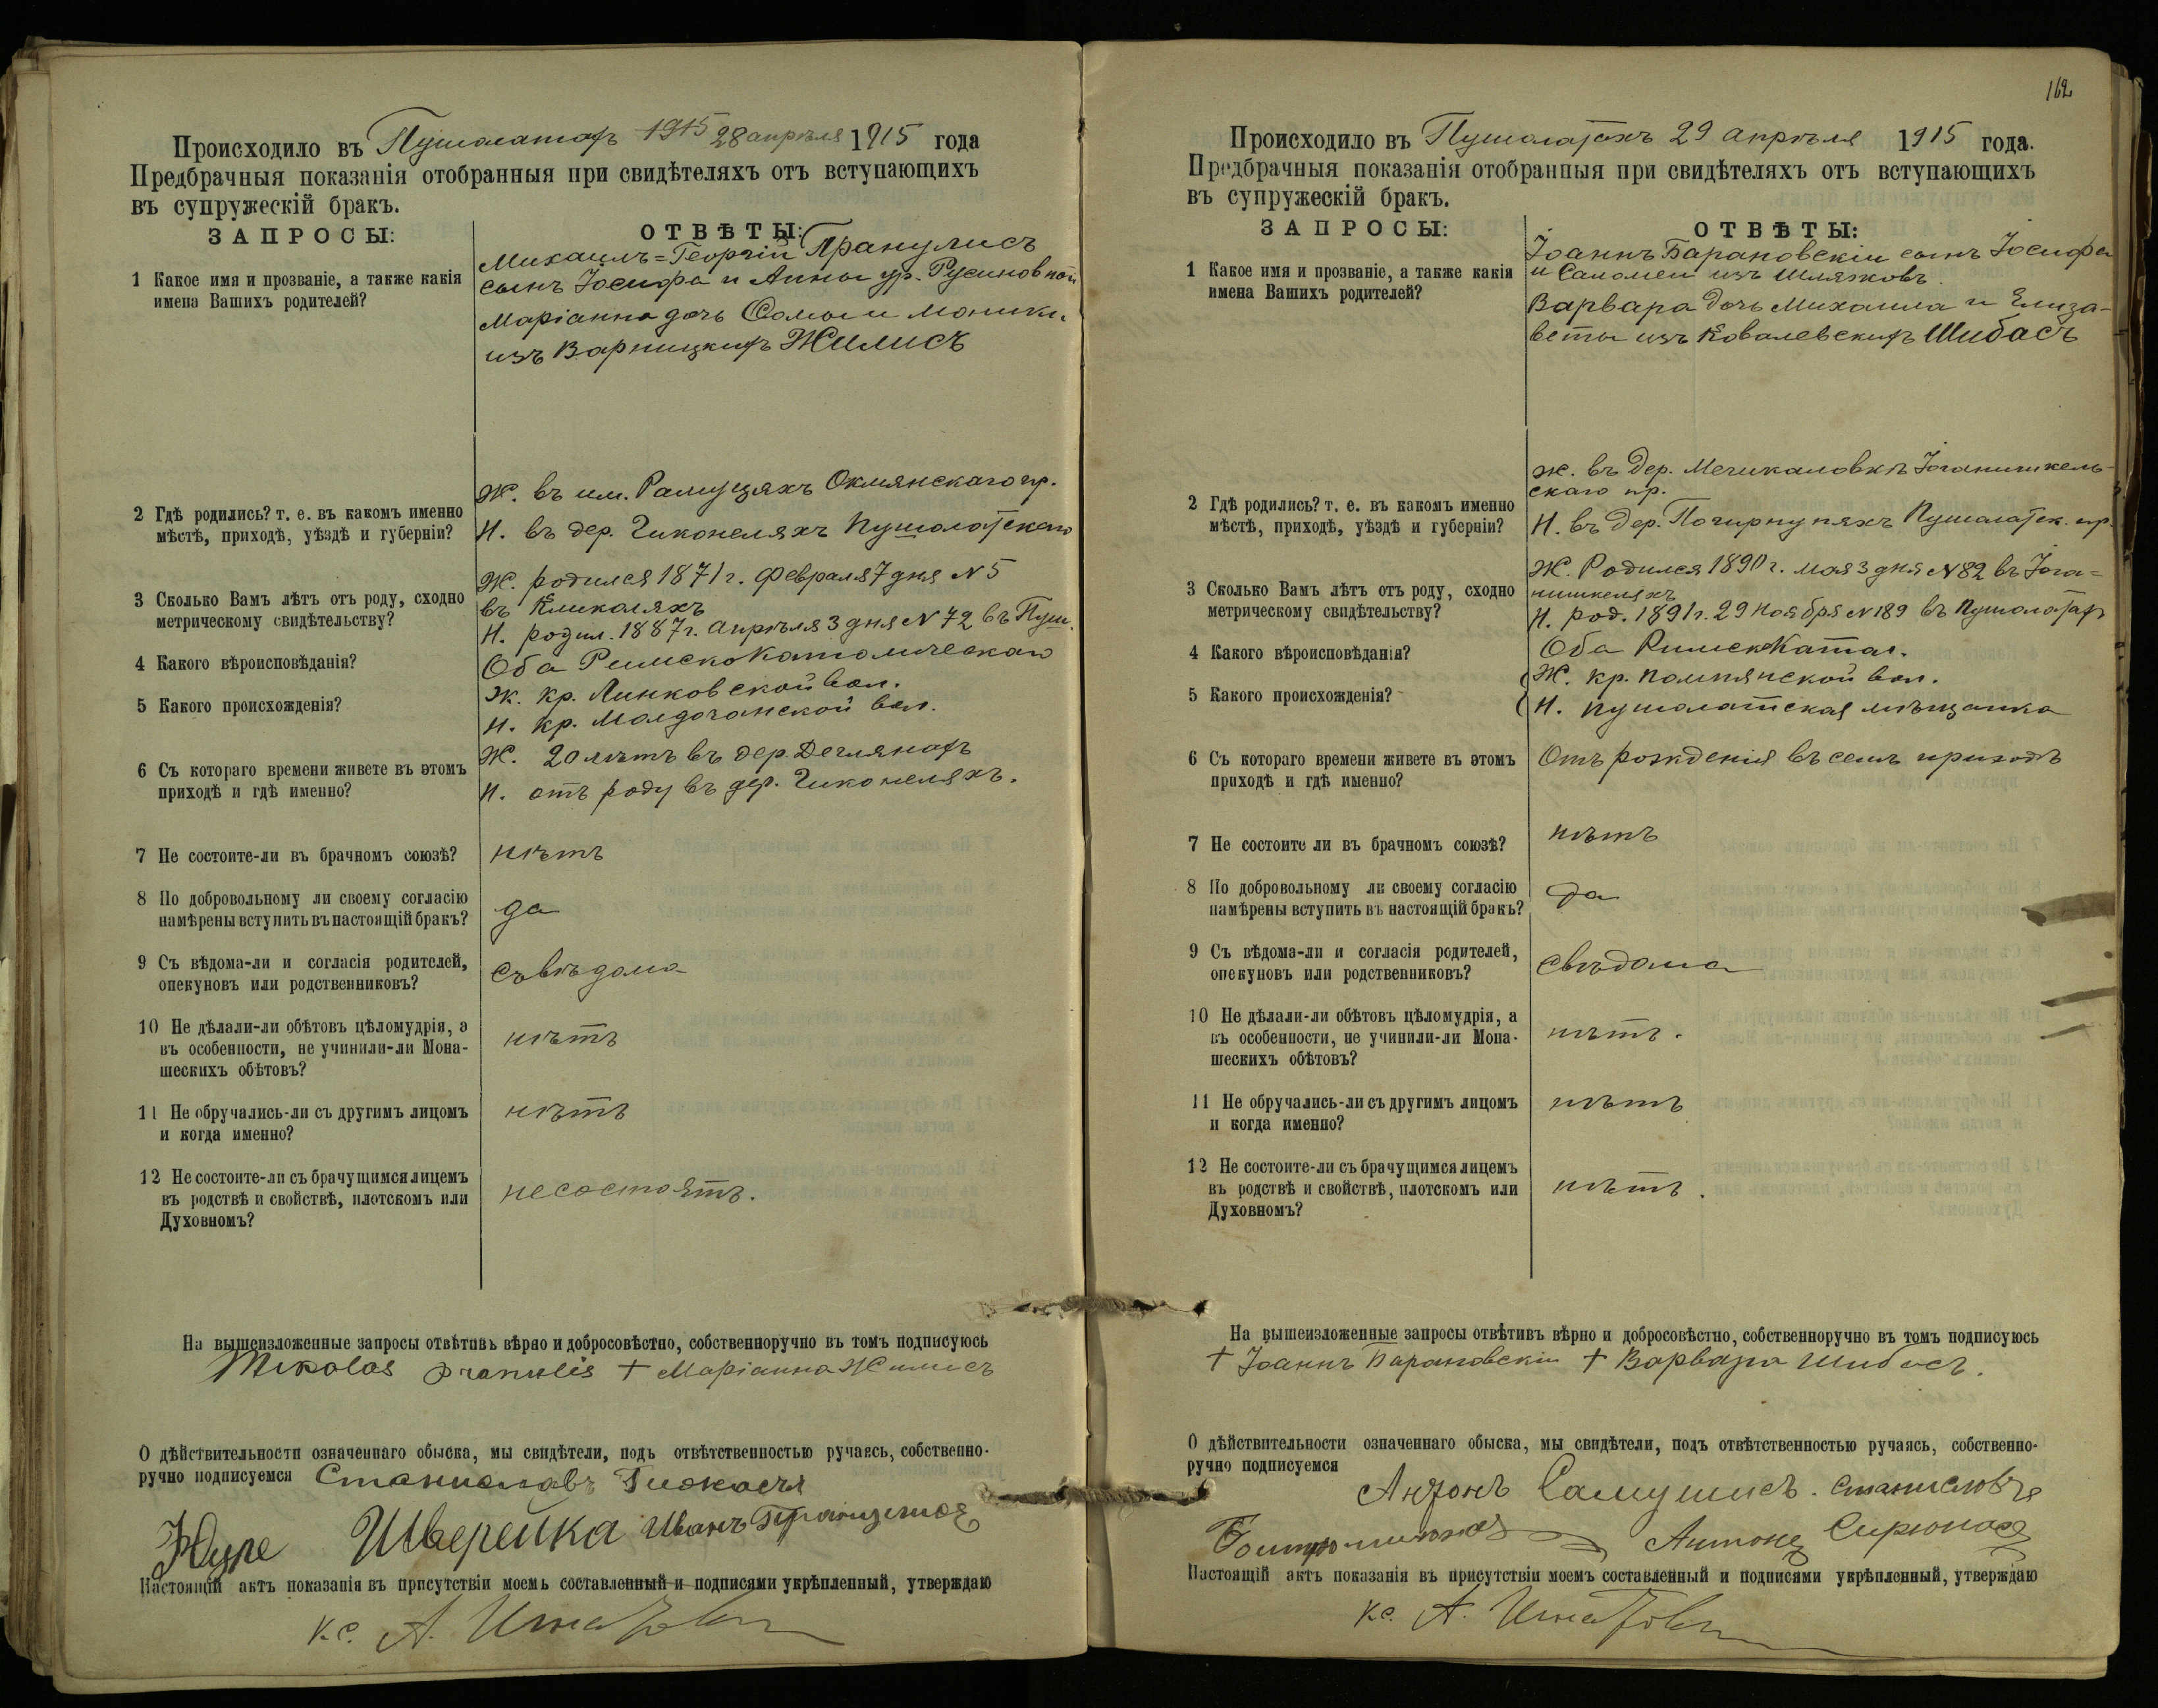 Происходило въ Пушалатахъ 1915 28 апрѣля 1915 года
Предбрачныя показанія отобранныя при свидѣтеляхъ отъ вступающихъ
въ супружескій бракъ.
ЗАПРОСЫ:
ОТВѢТЫ:
1 Какое имя и прозваніе, а также какія
имена Вашихъ родителей?
Михаилъ=Георгій Пранулисъ
сынъ Іосифа и Анны ур. Русиновной
Маріанна дочь Сомы и Моники
изъ Варницкихъ Жилисъ
2 Гдѣ родились? т. е. въ какомъ именно
мѣстѣ, приходѣ, уѣздѣ и губерніи?
Ж. въ им. Рамуцяхъ Окмянскаго пр.
Н. въ дер. Чиконеляхъ Пушолотскаго
3 Сколько Вамъ лѣтъ отъ роду, сходно
метрическому свидѣтельству?
Ж. родился 1871 г. Февраля 7 дня N 5
въ Кликоляхъ
Н. родил. 1887 г. Апрѣля 3 дня N 72 въ Пуш.
4 Какого вѣроисповѣданія?
Оба РимскоКатолическаго
5 Какого происхожденія?
Ж. кр. Линковской вол.
Н. кр. вол.
6 Съ котораго времени живете въ этомъ
приходѣ и гдѣ именно?
Ж. 20 лѣтъ въ дер. Деглянахъ
Н. отъ роду въ дер. Чиконеляхъ.
7 Не состоите-ли въ брачномъ союзѣ?
нѣтъ
8 По добровольному ли своему согласію
намѣрены вступить въ настоящій бракъ?
да
9 Съ вѣдома-ли и согласія родителей,
опекуновъ или родственниковъ?
Съ вѣдома
10 Не дѣлали-ли обѣтовъ цѣломудрія, а
въ особенности, не учинили-ли Мона-
шескихъ обѣтовъ?
нѣтъ
11 Не обручались-ли съ другимъ лицомъ
и когда именно?
нѣтъ
12 Не состоите-ли съ брачущимся лицемъ
въ родствѣ и свойствѣ, плотскомъ или
Духовномъ?
несостоятъ.
На вышеизложенные запросы отвѣтивъ вѣрно и добросовѣстно, собственноручно въ томъ подписуюсь
Mikolas Pranulis + Маріанна Жилисъ
О дѣйствительности означеннаго обыска, мы свидѣтели, подъ отвѣтственностью ручаясь, собственно-
ручно подписуемся Станиславъ
Юре Шверейка Иванъ
Настоящій актъ показанія въ присутствіи моемъ составленный и подписями укрѣпленный, утверждаю
Кс. А.
162
Происходило въ Пушалатахъ 29 апрѣля 1915 года.
Предбрачныя показанія отобранныя при свидѣтеляхъ отъ вступающихъ
въ супружескій бракъ.
ЗАПРОСЫ:
ОТВѢТЫ:
1 Какое имя и прозваніе, а также какія
имена Вашихъ родителей?
Іоаннъ Барановскій сынъ Іосифа
и Саломеи изъ Шляжковъ
Варвара дочь Михаила и Елиза-
веты изъ Ковалевскихъ Шибасъ
2 Гдѣ родились? т. е. въ какомъ именно
мѣстѣ, приходѣ, уѣздѣ и губерніи?
Ж. въ дер. Мечикаловкѣ Іоганишкель-
скаго пр.
Н. въ дер. Погирнупяхъ Пушалатск. пр.
3 Сколько Вамъ лѣтъ отъ роду, сходно
метрическому свидѣтельству?
Ж. Родился 1890 г. мая 3 дня N 82 въ Іога=
нишкеляхъ
Н. род. 1891 г. 29 Ноября N 189 въ Пушолатахъ
4 Какого вѣроисповѣданія?
Оба РимскКатол.
5 Какого происхожденія?
Ж. кр. Помпянской вол.
Н. Пушолатская мѣщанка
6 Съ котораго времени живете въ этомъ
приходѣ и гдѣ именно?
Отъ рожденія въ семъ приходѣ
7 Не состоите ли въ брачномъ союзѣ?
нѣтъ
8 По добровольному ли своему согласію
намѣрены вступить въ настоящій бракъ?
да
9 Съ вѣдома-ли и согласія родителей,
опекуновъ или родственниковъ?
Свѣдома
10 Не дѣлали-ли обѣтовъ цѣломудрія, а
въ особенности, не учинили-ли Мона-
шескихъ обѣтовъ?
нѣтъ.
11 Не обручались-ли съ другимъ лицомъ
и когда именно?
нѣтъ
12 Не состоите-ли съ брачущимся лицемъ
въ родствѣ и свойствѣ, плотскомъ или
Духовномъ?
нѣтъ.
На вышеизложенные запросы отвѣтивъ вѣрно и добросовѣстно, собственноручно въ томъ подписуюсь
+ Іоаннъ Барановскій + Варвара Шибасъ.
О дѣйствительности означеннаго обыска, мы свидѣтели, подъ отвѣтственностью ручаясь, собственно-
ручно подписуемся
Антонъ Самушисъ.
Антонъ
Настоящій актъ показанія въ присутствіи моемъ составленный и подписями укрѣпленный, утверждаю
Кс. А.